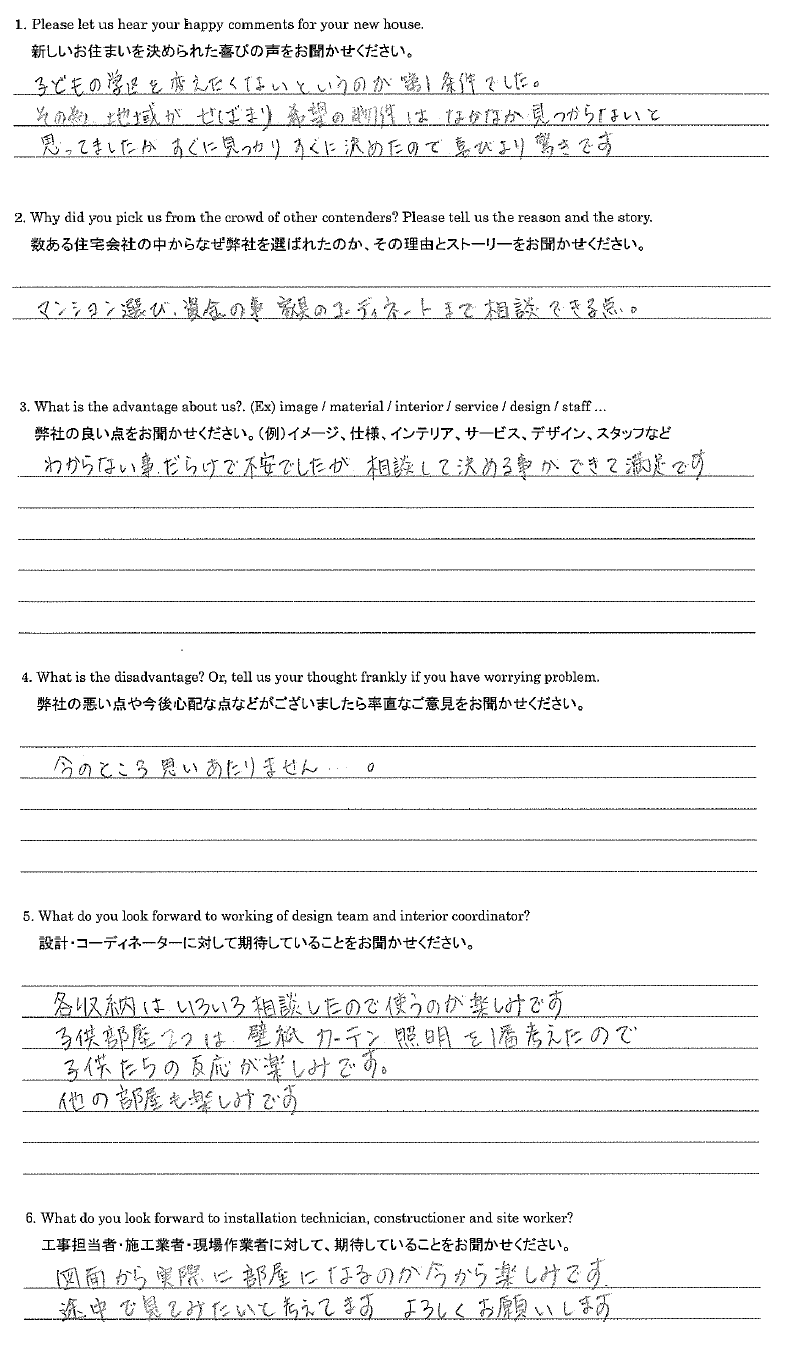 1. Please let us hear your happy comments for your new house.
新しいお住まいを決められた喜びの声をお聞かせください。
子どもの学区を変えたくないというのが第1条件でした。
その為、地域がせばまり希望の物件はなかなか見つからないと
思ってましたが すぐに見つかり すぐに決めたので 喜びより驚きです
2. Why did you pick us from the crowd of other contenders? Please tell us the reason and the story.
数ある住宅会社の中からなぜ弊社を選ばれたのか、その理由とストーリーをお聞かせください。
マンション選び、資金の事 家具のコーディネートまで相談できる点。
3. What is the advantage about us?. (Ex) image / material / interior / service / design / staff ...
弊社の良い点をお聞かせください。(例)イメージ、仕様、インテリア、サービス、デザイン、スタッフなど
わからない事だらけで不安でしたが 相談して決める事ができて満足です
4. What is the disadvantage? Or, tell us your thought frankly if you have worrying problem.
弊社の悪い点や今後心配な点などがございましたら率直なご意見をお聞かせください。
今のところ思いあたりません…。
5. What do you look forward to working of design team and interior coordinator?
設計・コーディネーターに対して期待していることをお聞かせください。
各収納はいろいろ相談したので使うのが楽しみです
子供部屋2つは 壁紙 カーテン 照明を1番考えたので
子供たちの反応が楽しみです。
他の部屋も楽しみです
6. What do you look forward to installation technician, constructioner and site worker?
工事担当者・施工業者・現場作業者に対して、期待していることをお聞かせください。
図面から実際に部屋になるのが今から楽しみです
途中で見てみたいと考えてます よろしくお願いします